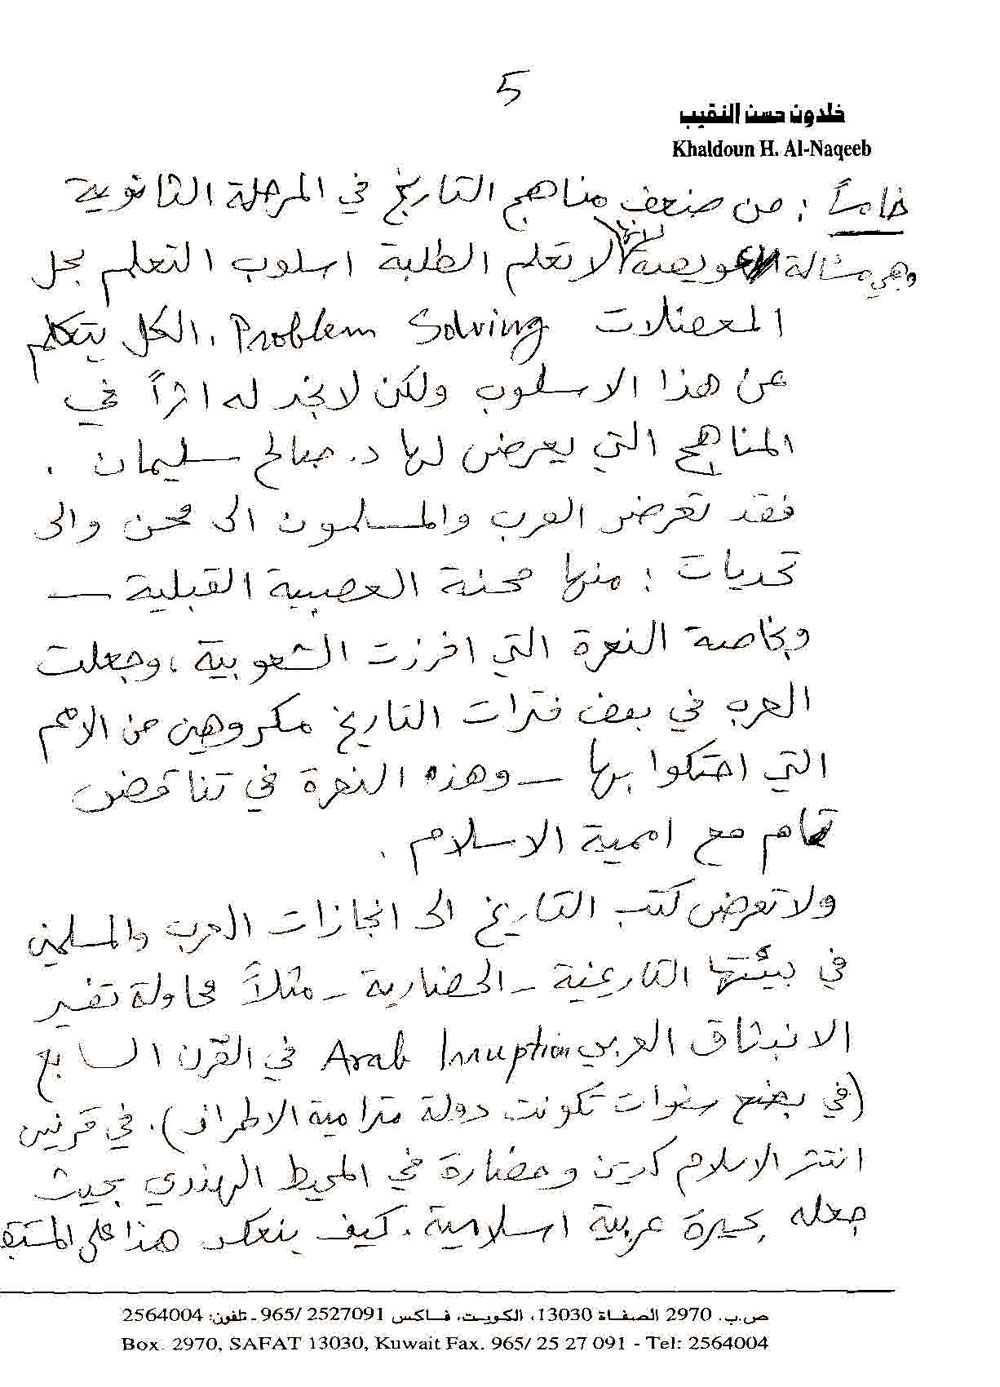 5
خلدون حسن النقيب
Khaldoun H. Al-Naqeeb
خامساً : من ضعف مناهج التاريخ في المرحلة الثانوية
وهي مسألة عويصة لانها لا تعلم الطلبة اسلوب التعلم بحل
المعضلات Problem Solving. الكل يتكلم
عن هذا الاسلوب ولكن لا نجد له اثراً في
المناهج التي يعرض لها د. صالح سليمان .
فقد تعرض العرب والمسلمون الى محن والى
تحديات : منها محنة العصبية القبلية —
وبخاصة النعرة التي افرزت الشعوبية ، وجعلت
العرب في بعض فترات التاريخ مكروهين من الامم
التي احتكوا بها — وهذه النعرة في تناقض
تام مع اممية الاسلام .
ولا تعرض كتب التاريخ الى انجازات العرب والمسلمين
في بيئتها التاريخية - الحضارية - مثلاً محاولة تفسير
الانبثاق العربي Arab Irruption في القرن السابع
(في بضع سنوات تكونت دولة مترامية الاطراف). في قرنين
انتشر الاسلام كدين وحضارة في المحيط الهندي بحيث
جعله بحيرة عربية اسلامية. كيف ينعكس هذا على
ص.ب. 2970 الصفاة 13030، الكويت، فـاكس 2527091 /965 ـ تلفون: 2564004
Box. 2970, SAFAT 13030, Kuwait Fax. 965/ 25 27 091 - Tel: 2564004